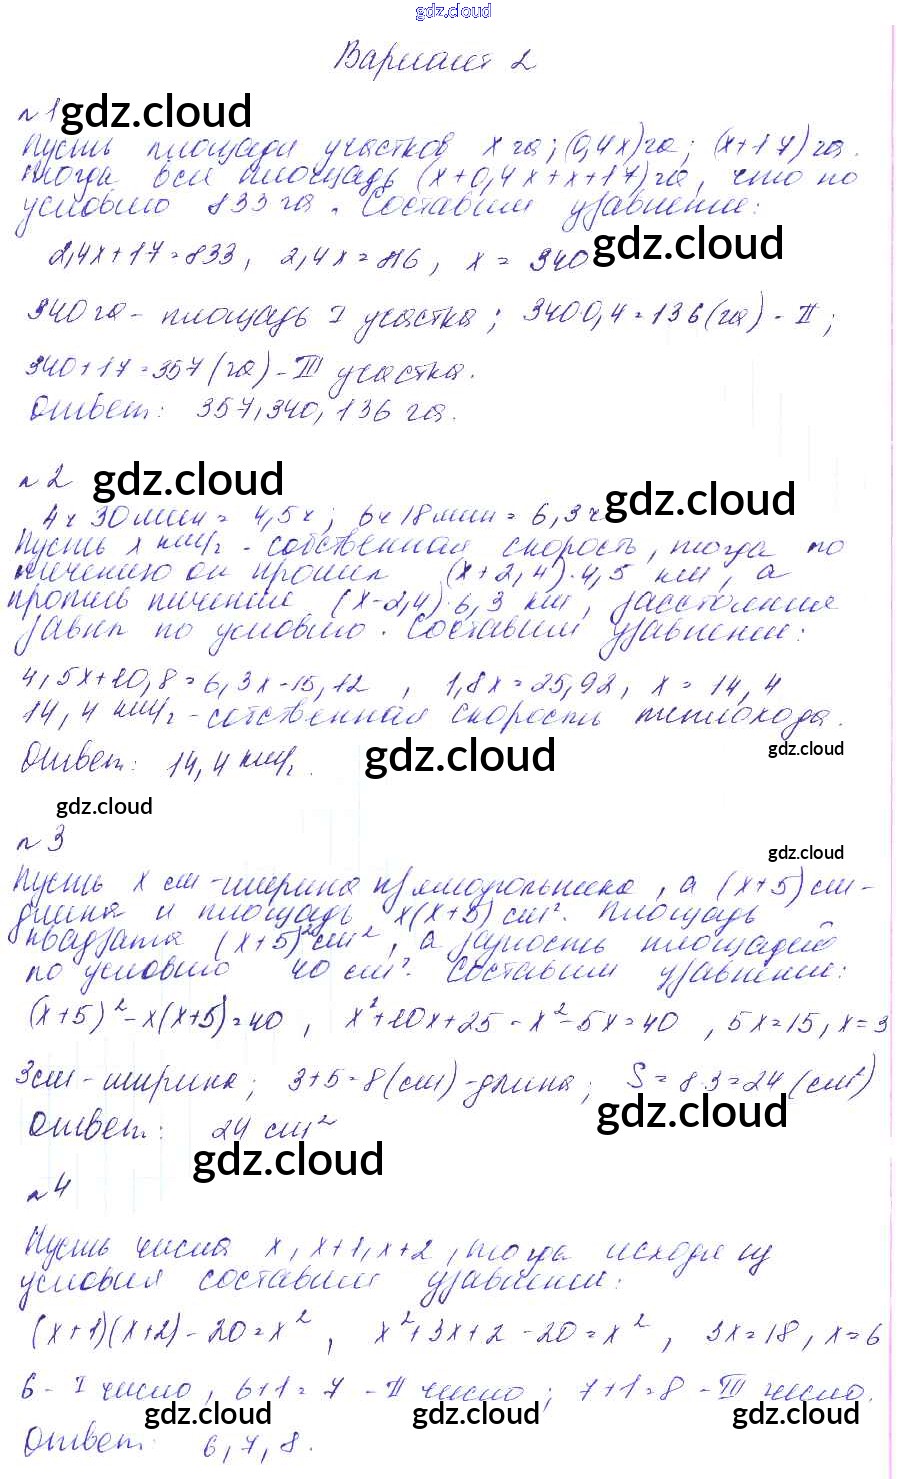 gdz.cloud
Вариант 2
№1 gdz.cloud
Пусть площади участков x га; (0,4x) га; (x+17) га.
Тогда вся площадь (x+0,4x+x+17) га, что по
условию 833 га. Составим уравнение:
gdz.cloud
2,4x+17=833, 2,4x=816, x = 340
340 га - площадь I участка; 340·0,4=136 (га) - II;
340+17=357 (га) - III участка.
Ответ: 357, 340, 136 га.
№2 gdz.cloud
gdz.cloud
4ч 30мин = 4,5ч; 6ч 18мин = 6,3ч
Пусть x км/ч - собственная скорость, тогда по
течению он прошел (x+2,4)·4,5 км, а
против течения (x-2,4)·6,3 км, расстояния
равны по условию. Составим уравнение:
4,5x+10,8=6,3x-15,12, 1,8x=25,92, x=14,4
14,4 км/ч - собственная скорость теплохода.
gdz.cloud
gdz.cloud
Ответ: 14,4 км/ч.
gdz.cloud
№3
gdz.cloud
Пусть x см - ширина прямоугольника, а (x+5) см -
длина и площадь x(x+5) см². Площадь
квадрата (x+5)² см², а разность площадей
по условию 40 см². Составим уравнение:
(x+5)²-x(x+5)=40, x²+10x+25-x²-5x=40, 5x=15, x=3
3см - ширина; 3+5=8 (см) - длина; S=8·3=24 (см²)
gdz.cloud
Ответ: 24 см²
gdz.cloud
№4
Пусть числа x, x+1, x+2, тогда исходя из
условия составим уравнение:
(x+1)(x+2)-20=x², x²+3x+2-20=x², 3x=18, x=6
6 - I число, 6+1=7 - II число; 7+1=8 - III число.
gdz.cloud gdz.cloud gdz.cloud
Ответ: 6, 7, 8.